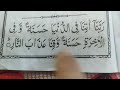 رَبَّنَا اٰتِنَا فِی الدُّنْیَا حَسَنَةً وَّ فِی
الْاٰخِرَةِ حَسَنَةً وَّ قِنَا عَذَابَ النَّارِ